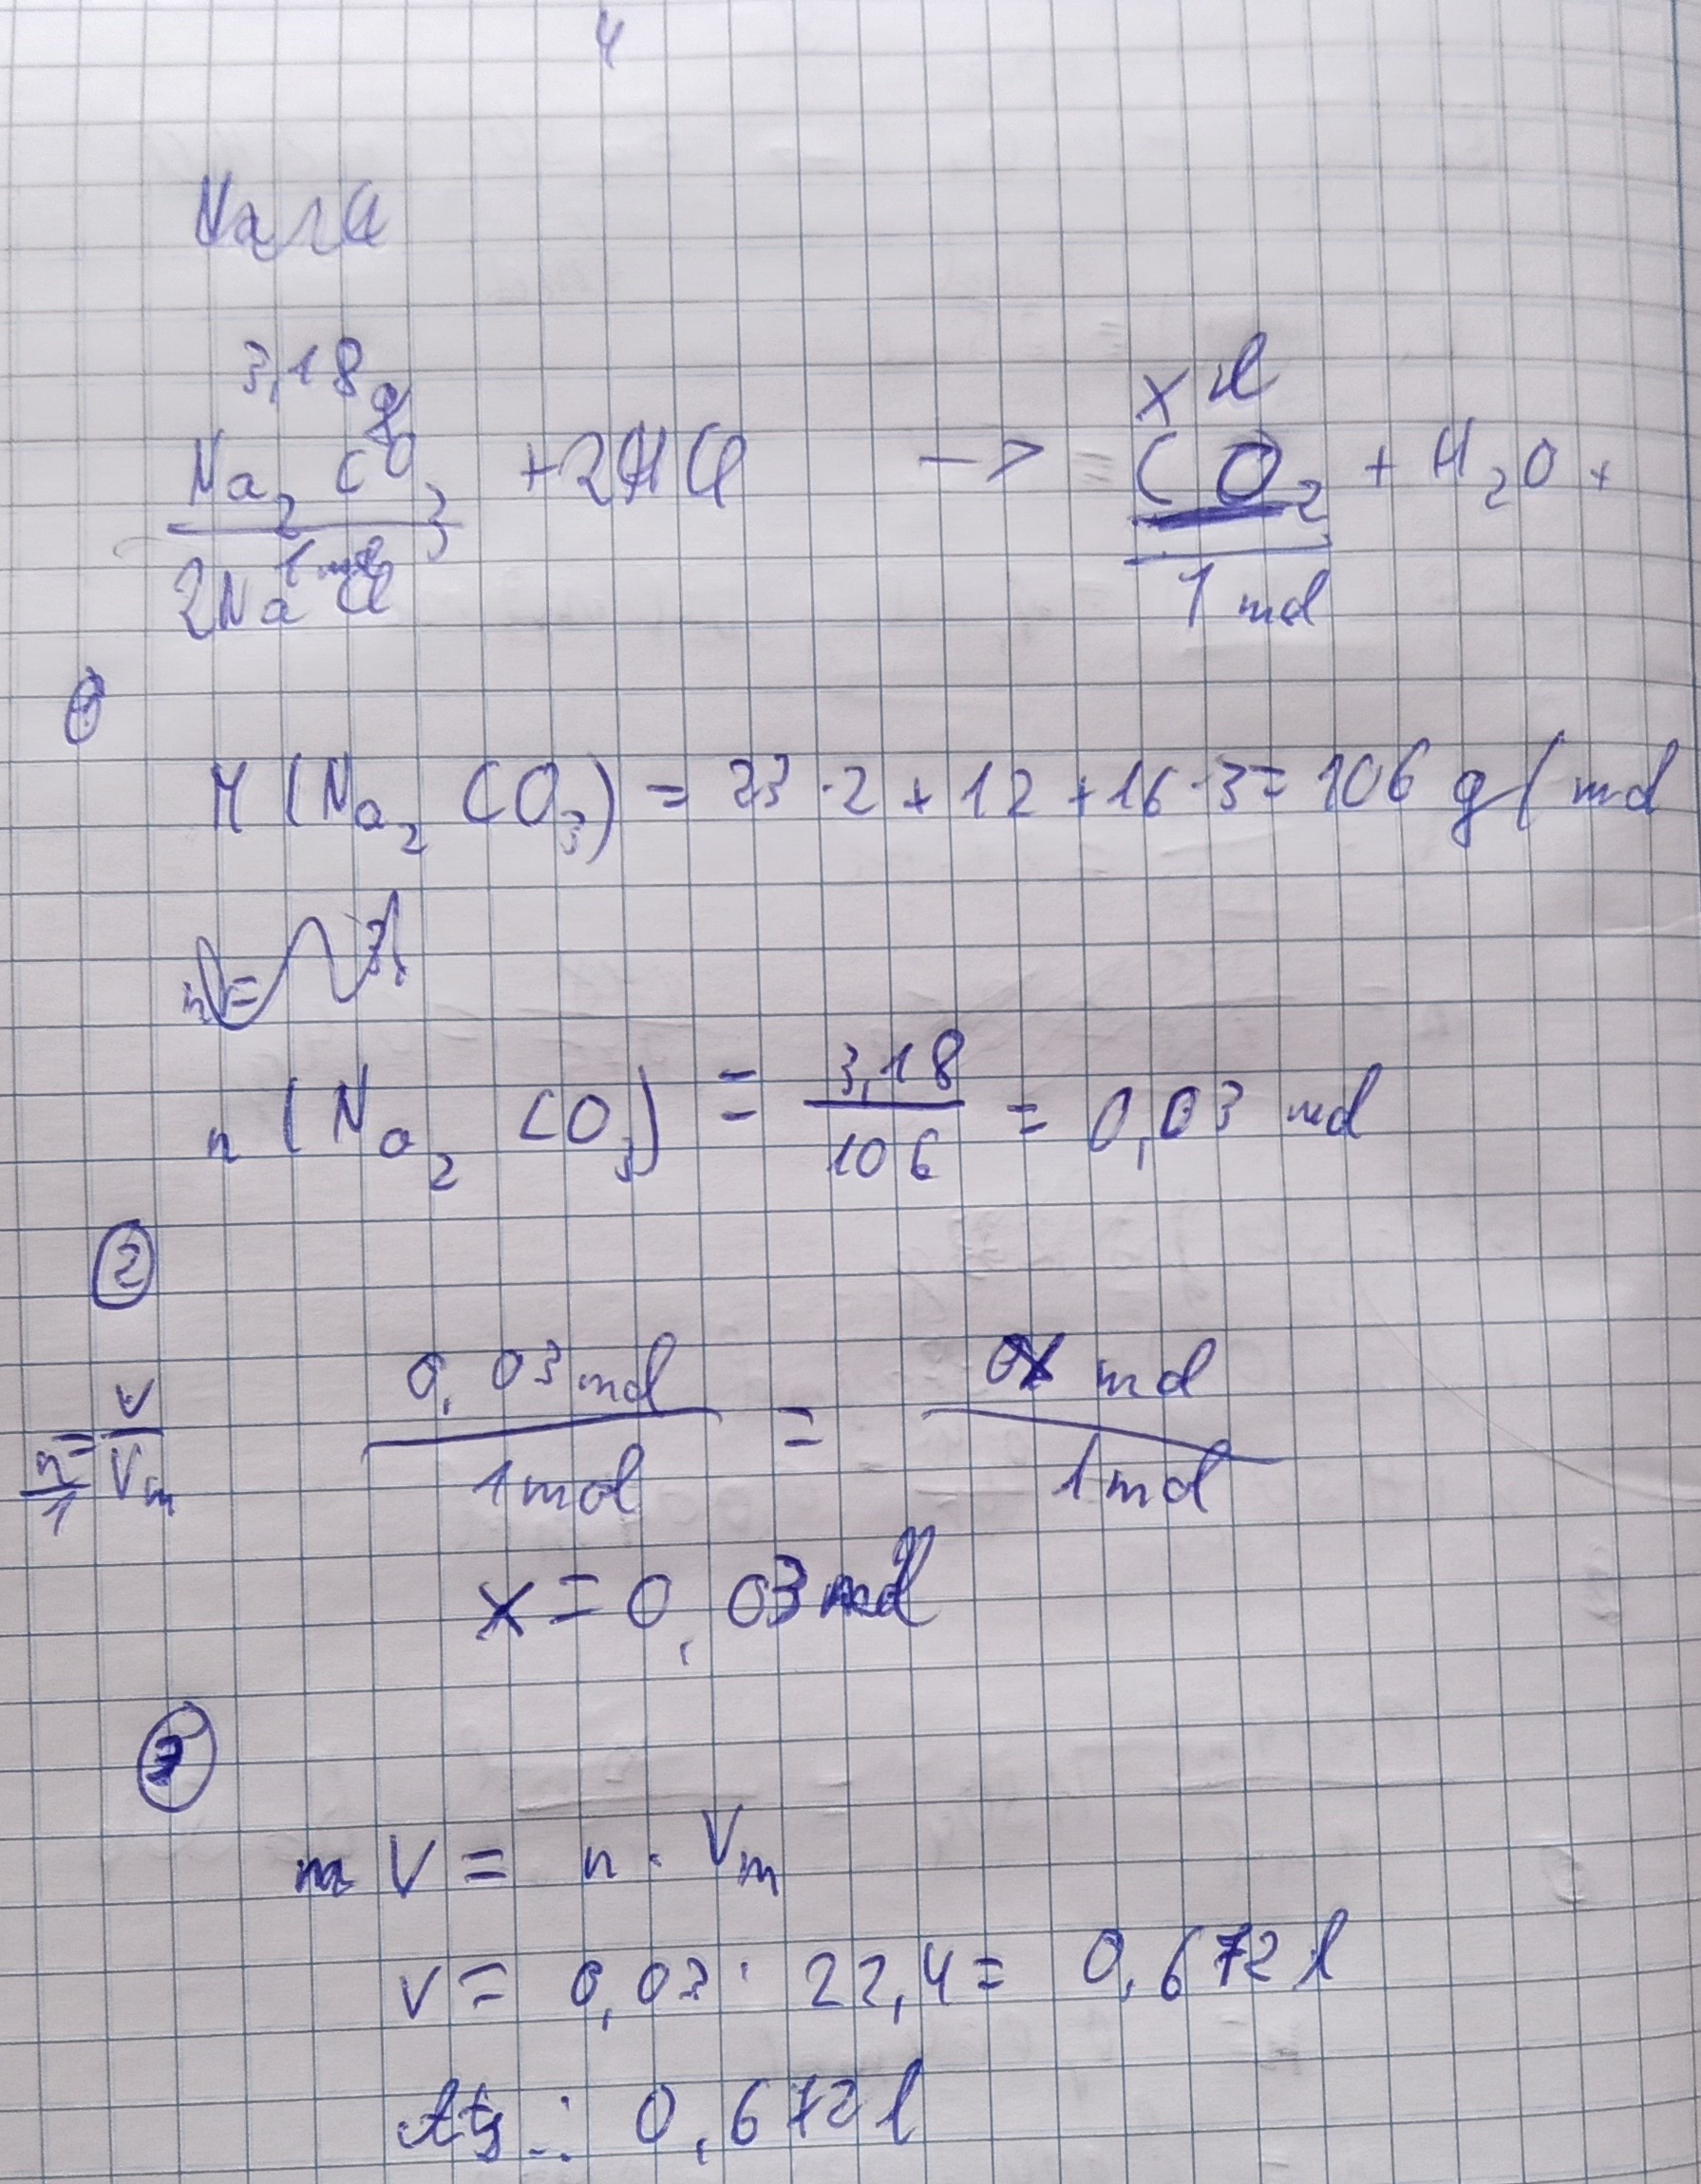 4
3,18 g
x l
Na₂CO₃ + 2HCl -> CO₂ + H₂O +
1 mol
1 mol
2NaCl
M (Na₂CO₃) = 23 · 2 + 12 + 16 · 3 = 106 g/mol
n (Na₂CO₃) = 3,18/106 = 0,03 mol
②
n/1 = V/Vm
0,03 mol/1 mol = x mol/1 mol
x = 0,03 mol
③
V = n · Vm
V = 0,03 · 22,4 = 0,672 l
Ats.: 0,672 l